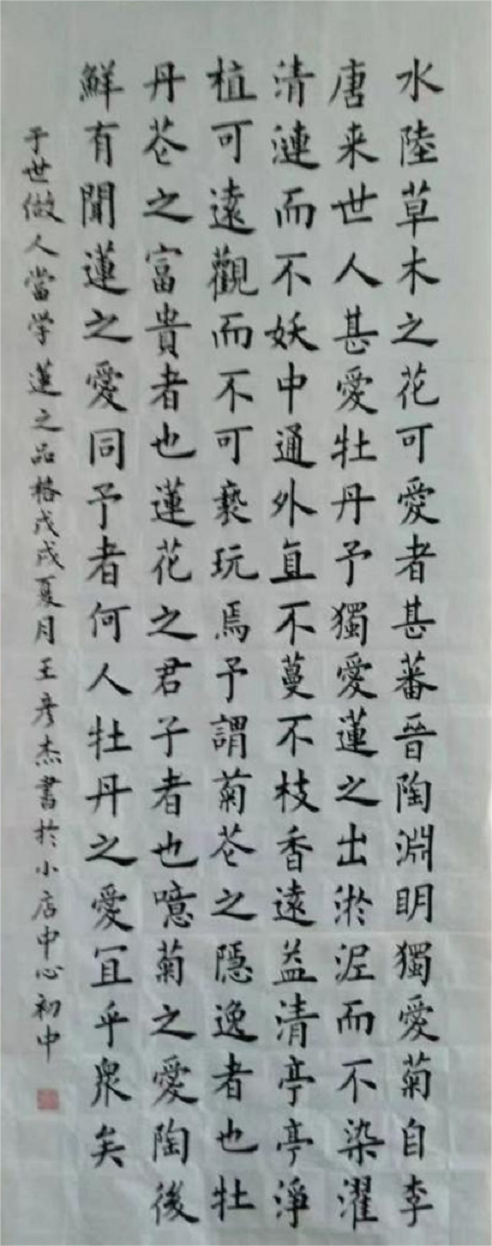 水陸草木之花可愛者甚蕃晉陶淵明獨愛菊自李
唐来世人甚愛牡丹予獨愛蓮之出淤泥而不染濯
清漣而不妖中通外直不蔓不枝香遠益清亭亭淨
植可遠觀而不可褻玩焉予謂菊花之隱逸者也牡
丹花之富貴者也蓮花之君子者也噫菊之愛陶後
鮮有聞蓮之愛同予者何人牡丹之愛宜乎衆矣
于世做人當学蓮之品格戊戌夏月王彦杰書於小店中心初中